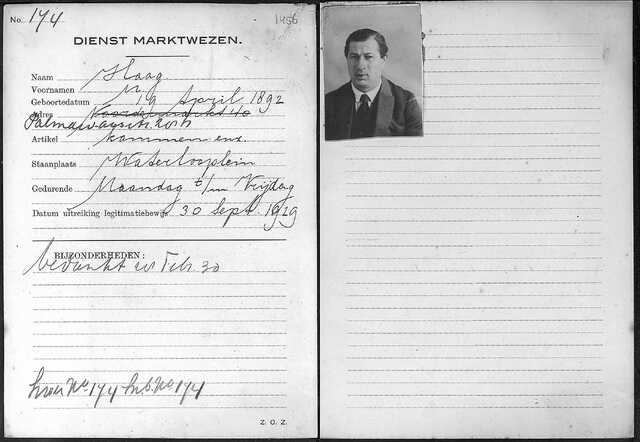 No. 174
1456
DIENST MARKTWEZEN.
Naam Haag
Voornamen M.
Geboortedatum 19 April 1892
Adres
Artikel kammen enz.
Staanplaats Waterlooplein
Gedurende Maandag t/m Vrijdag
Datum uitreiking legitimatiebewijs 30 Sept. 1929
BIJZONDERHEDEN:
bedankt Feb. 30
No 174 No 174
Z. O. Z.